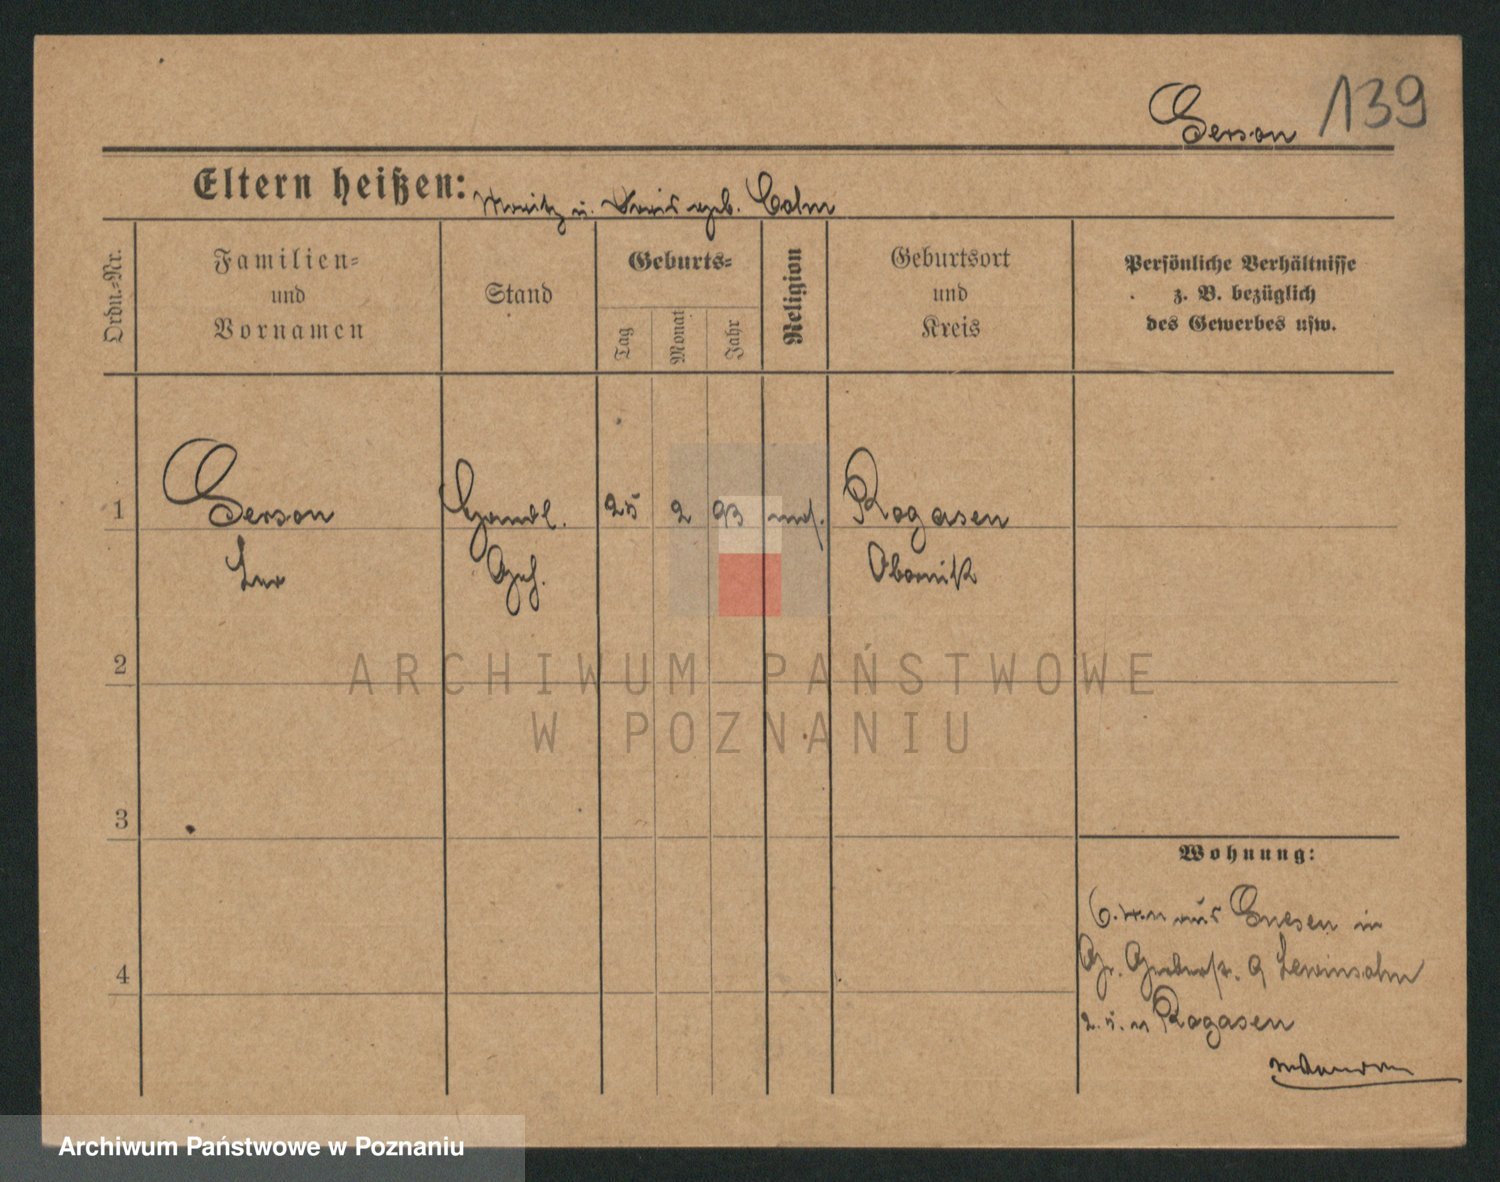 Gerson 139
Eltern heißen: Moritz u. Doris geb. Cohn
Ordn.-Nr.
Familien-
und
Vornamen
Stand
Geburts-
Tag
Monat
Jahr
Religion
Geburtsort
und
Kreis
Persönliche Verhältnisse
z. B. bezüglich
des Gewerbes usw.
1 Gerson Handl. 25 2 93 mos. Rogasen
Leo Geh. Obornik
2
3
4
Wohnung:
aus Gnesen in
Gr. Gerberstr. 9 Lewinsohn
Rogasen
ARCHIWUM PAŃSTWOWE
W POZNANIU
Archiwum Państwowe w Poznaniu